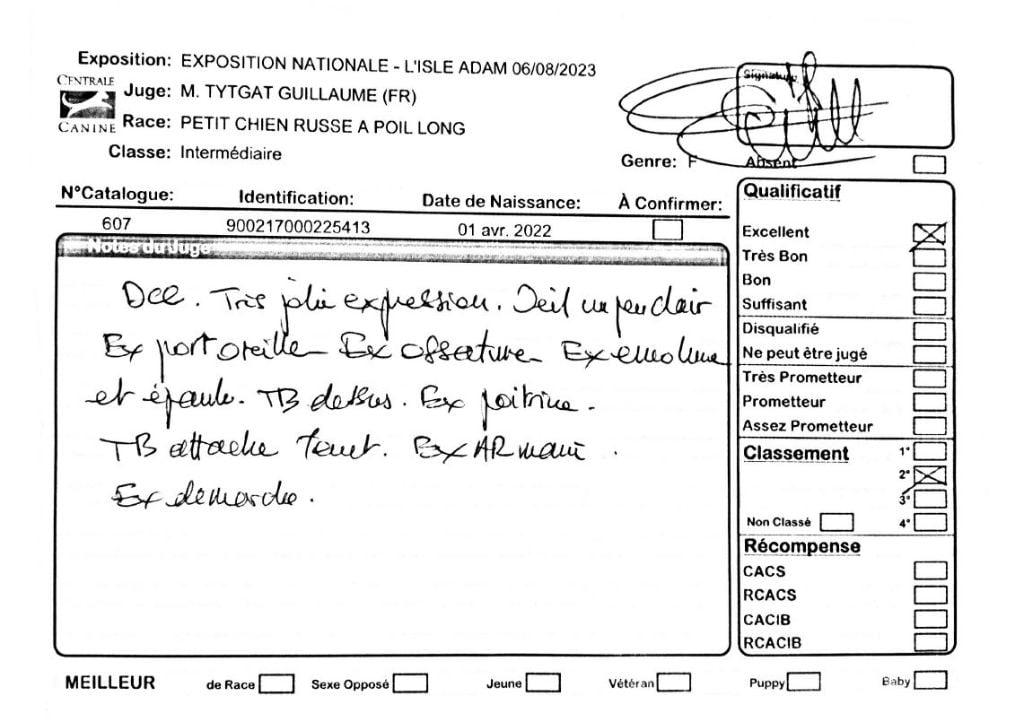 Exposition: EXPOSITION NATIONALE - L'ISLE ADAM 06/08/2023
CENTRALE CANINE
Juge: M. TYTGAT GUILLAUME (FR)
Race: PETIT CHIEN RUSSE A POIL LONG
Classe: Intermédiaire
Genre: F
Signature
Absent
N°Catalogue: Identification: Date de Naissance: À Confirmer:
607 900217000225413 01 avr. 2022
Notes du Juge
Très jolie expression. Oeil un peu clair
Ex port oreille Ex ossature Ex encolure
et épaule. TB dessus. Ex poitrine.
TB attache fouet. Ex AR main
Ex démarche.
Qualificatif
Excellent
Très Bon
Bon
Suffisant
Disqualifié
Ne peut être jugé
Très Prometteur
Prometteur
Assez Prometteur
Classement 1°
2°
3°
Non Classé 4°
Récompense
CACS
RCACS
CACIB
RCACIB
MEILLEUR de Race Sexe Opposé Jeune Vétéran Puppy Baby